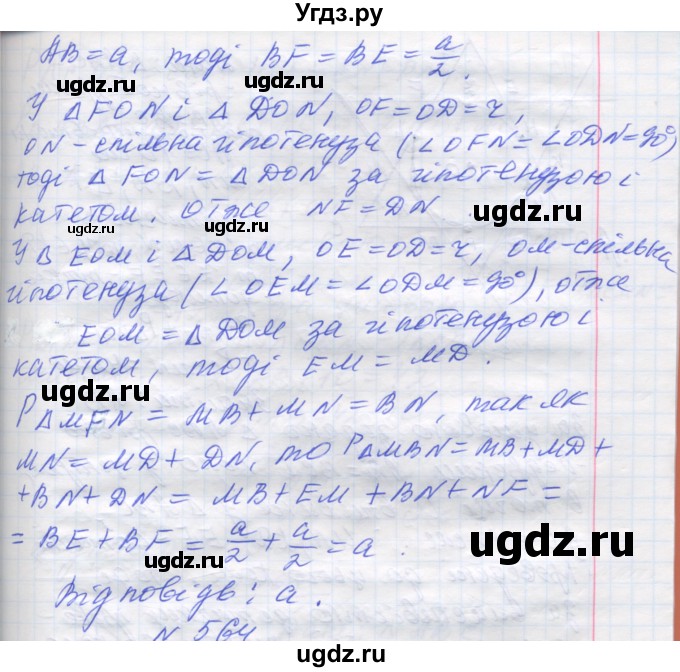 Угдз.ру
AB = a, тоді BF = BE = a/2.
У △ FON і △ DON, OF = OD = r,
ON - спільна гіпотенуза (∠OFN = ∠ODN = 90°)
тоді △ FON = △ DON за гіпотенузою і
катетом. Отже NF = DN.
У △ EOM і △ DOM, OE = OD = r, OM - спільна
гіпотенуза (∠OEM = ∠ODM = 90°), отже
EOM = △ DOM за гіпотенузою і
катетом, тоді EM = MD.
P△MFN = MB + MN = BN, так як
MN = MD + DN, то P△MBN = MB + MD +
+ BN + DN = MB + EM + BN + NF =
= BE + BF = a/2 + a/2 = a.
Відповідь: a.
N 564
ugdz.ru
ugdz.ru
ugdz.ru
ugdz.ru
ugdz.ru
ugdz.ru
ugdz.ru
ugdz.ru
ugdz.ru
ugdz.ru
ugdz.ru
ugdz.ru
ugdz.ru